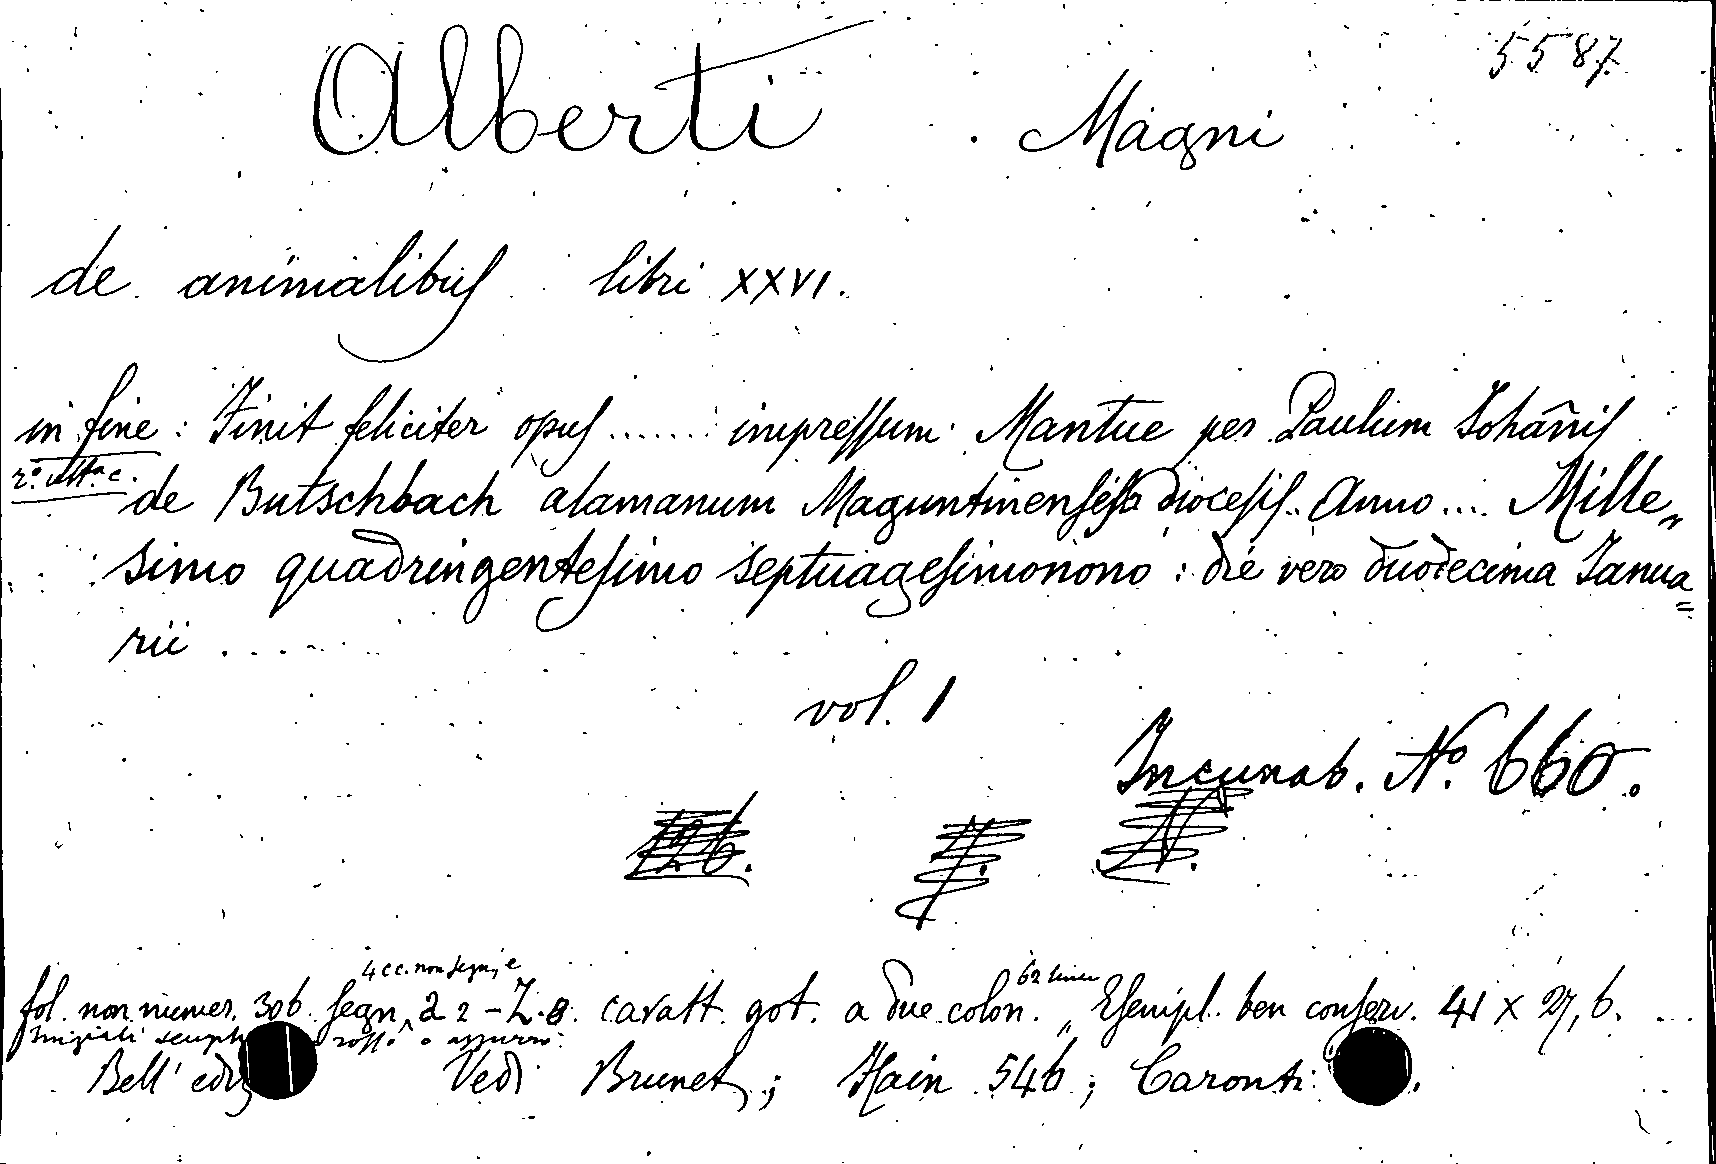 5587.
Alberti Magni
de animalibus libri XXVI.
in fine : Finit feliciter opus ...... impressum Mantue per Paulum Johañis
r.o ult.a c.
de Butschbach alamanum Maguntinensis diocesis. Anno .... Mille„
simo quadringentesimo septuagesimonono : die vero duodecima Janua=
rii .....
vol. 1
Incunab. No. 660.
4 cc. non segn, e
62 linee
fol. non numer. 306. segn. a 2 - Z. 8. caratt. got. a due colon. „ Esempl. ben conserv. 41 x 27,6.
Iniziali rosso o azzurro.
Bell' ediz Vedi Brunet ; Hain 546 ; Caronti